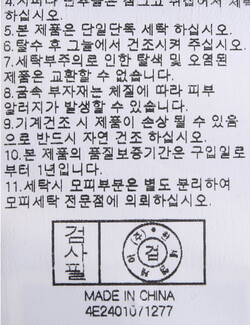 4.지퍼나 단추는 잠그고 뒤집어서 세탁
하십시오.
5.본 제품은 단일단독 세탁 하십시오.
6.탈수 후 그늘에서 건조시켜 주십시오.
7.세탁부주의로 인한 탈색 및 오염된
제품은 교환할 수 없습니다.
8.금속 부자재는 체질에 따라 피부
알러지가 발생할 수 있습니다.
9.기계건조 시 제품이 손상 될 수 있음
으로 반드시 자연 건조 하십시오.
10.본 제품의 품질보증기간은 구입일로
부터 1년입니다.
11.세탁시 모피부분은 별도 분리하여
모피세탁 전문점에 의뢰하십시오.
검사필
검
(주)
MADE IN CHINA
4E24010/1277